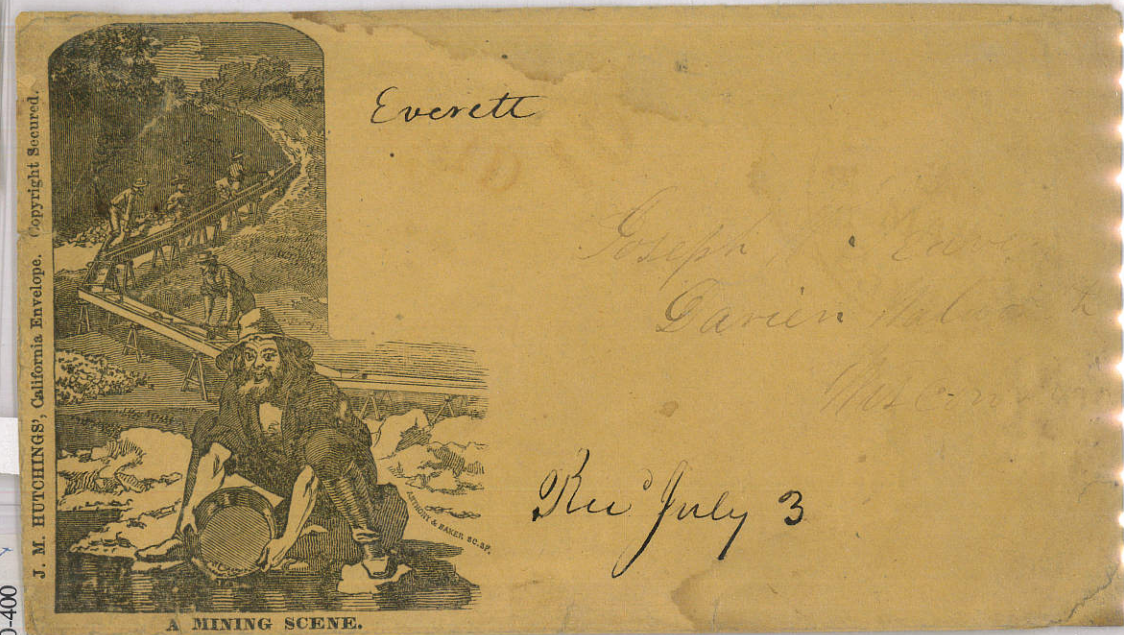 J. M. HUTCHINGS', California Envelope. Copyright Secured.
Everett
Joseph
Darien
Rec'd July 3
ANTHONY & BAKER SC. SF.
A MINING SCENE.
0-400